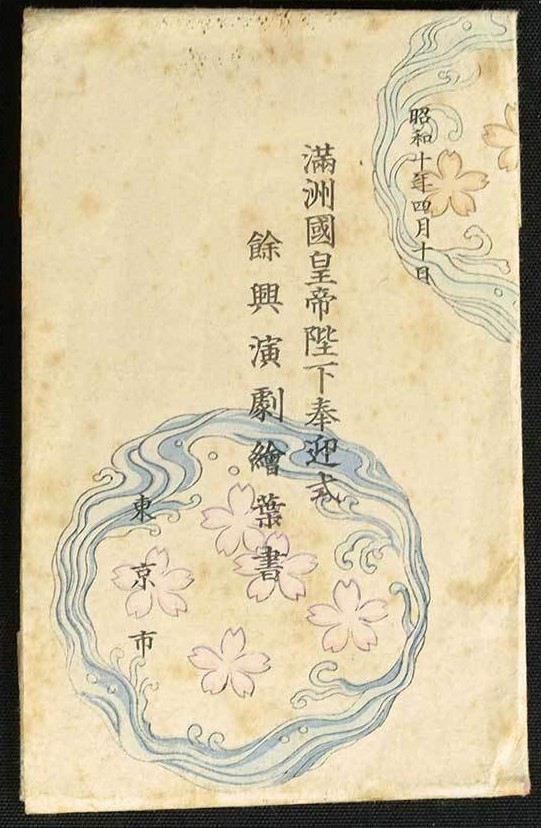 昭和十年四月十日
滿洲國皇帝陛下奉迎式
餘興演劇繪葉書
東京市